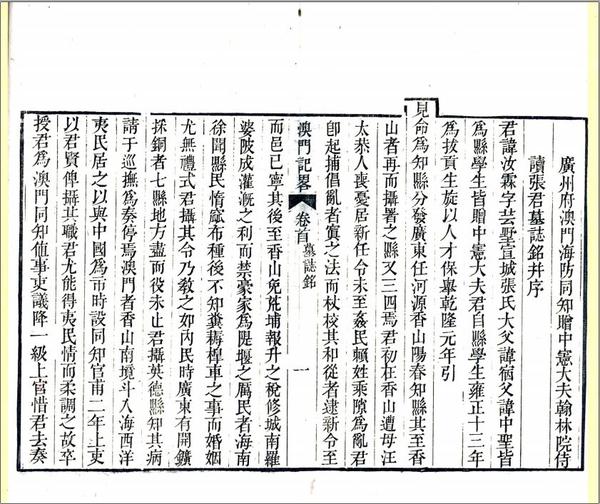 廣州府澳門海防同知贈中憲大夫翰林院侍
讀張君墓誌銘并序
君諱汝霖字芸墅宣城張氏大父諱宿父諱中聖皆
爲縣學生皆贈中憲大夫君自縣學生雍正十三年
爲拔貢生旋以人才保舉乾隆元年引
見命爲知縣分發廣東任河源香山陽春知縣其至香
山者再而攝署之縣又三四焉君初在香山遭母汪
太恭人喪憂居新任令未至姦民賴姓乘隙爲亂君
卽起捕倡亂者寘之法而杖校其和從者逮新令至
澳門記畧 卷首 墓誌銘 一
而邑已寧其後至香山免荒埔報升之稅修城南羅
婆陂成灌漑之利而禁豪家爲隄堰之厲民者海南
徐聞縣民惰窳布種後不知糞耨桿車之事而婚姻
尤無禮式君攝其令乃敎之如內民時廣東有開鑛
採銅者七縣地方盡而役未止君攝英德縣知其病
請于巡撫爲奏停焉澳門者香山南境斗入海西洋
夷民居之以與中國爲市時設同知官甫二年上吏
以君賢俾攝其職君尤能得夷民情而柔調之故卒
授君爲澳門同知値事吏議降一級上官惜君去奏